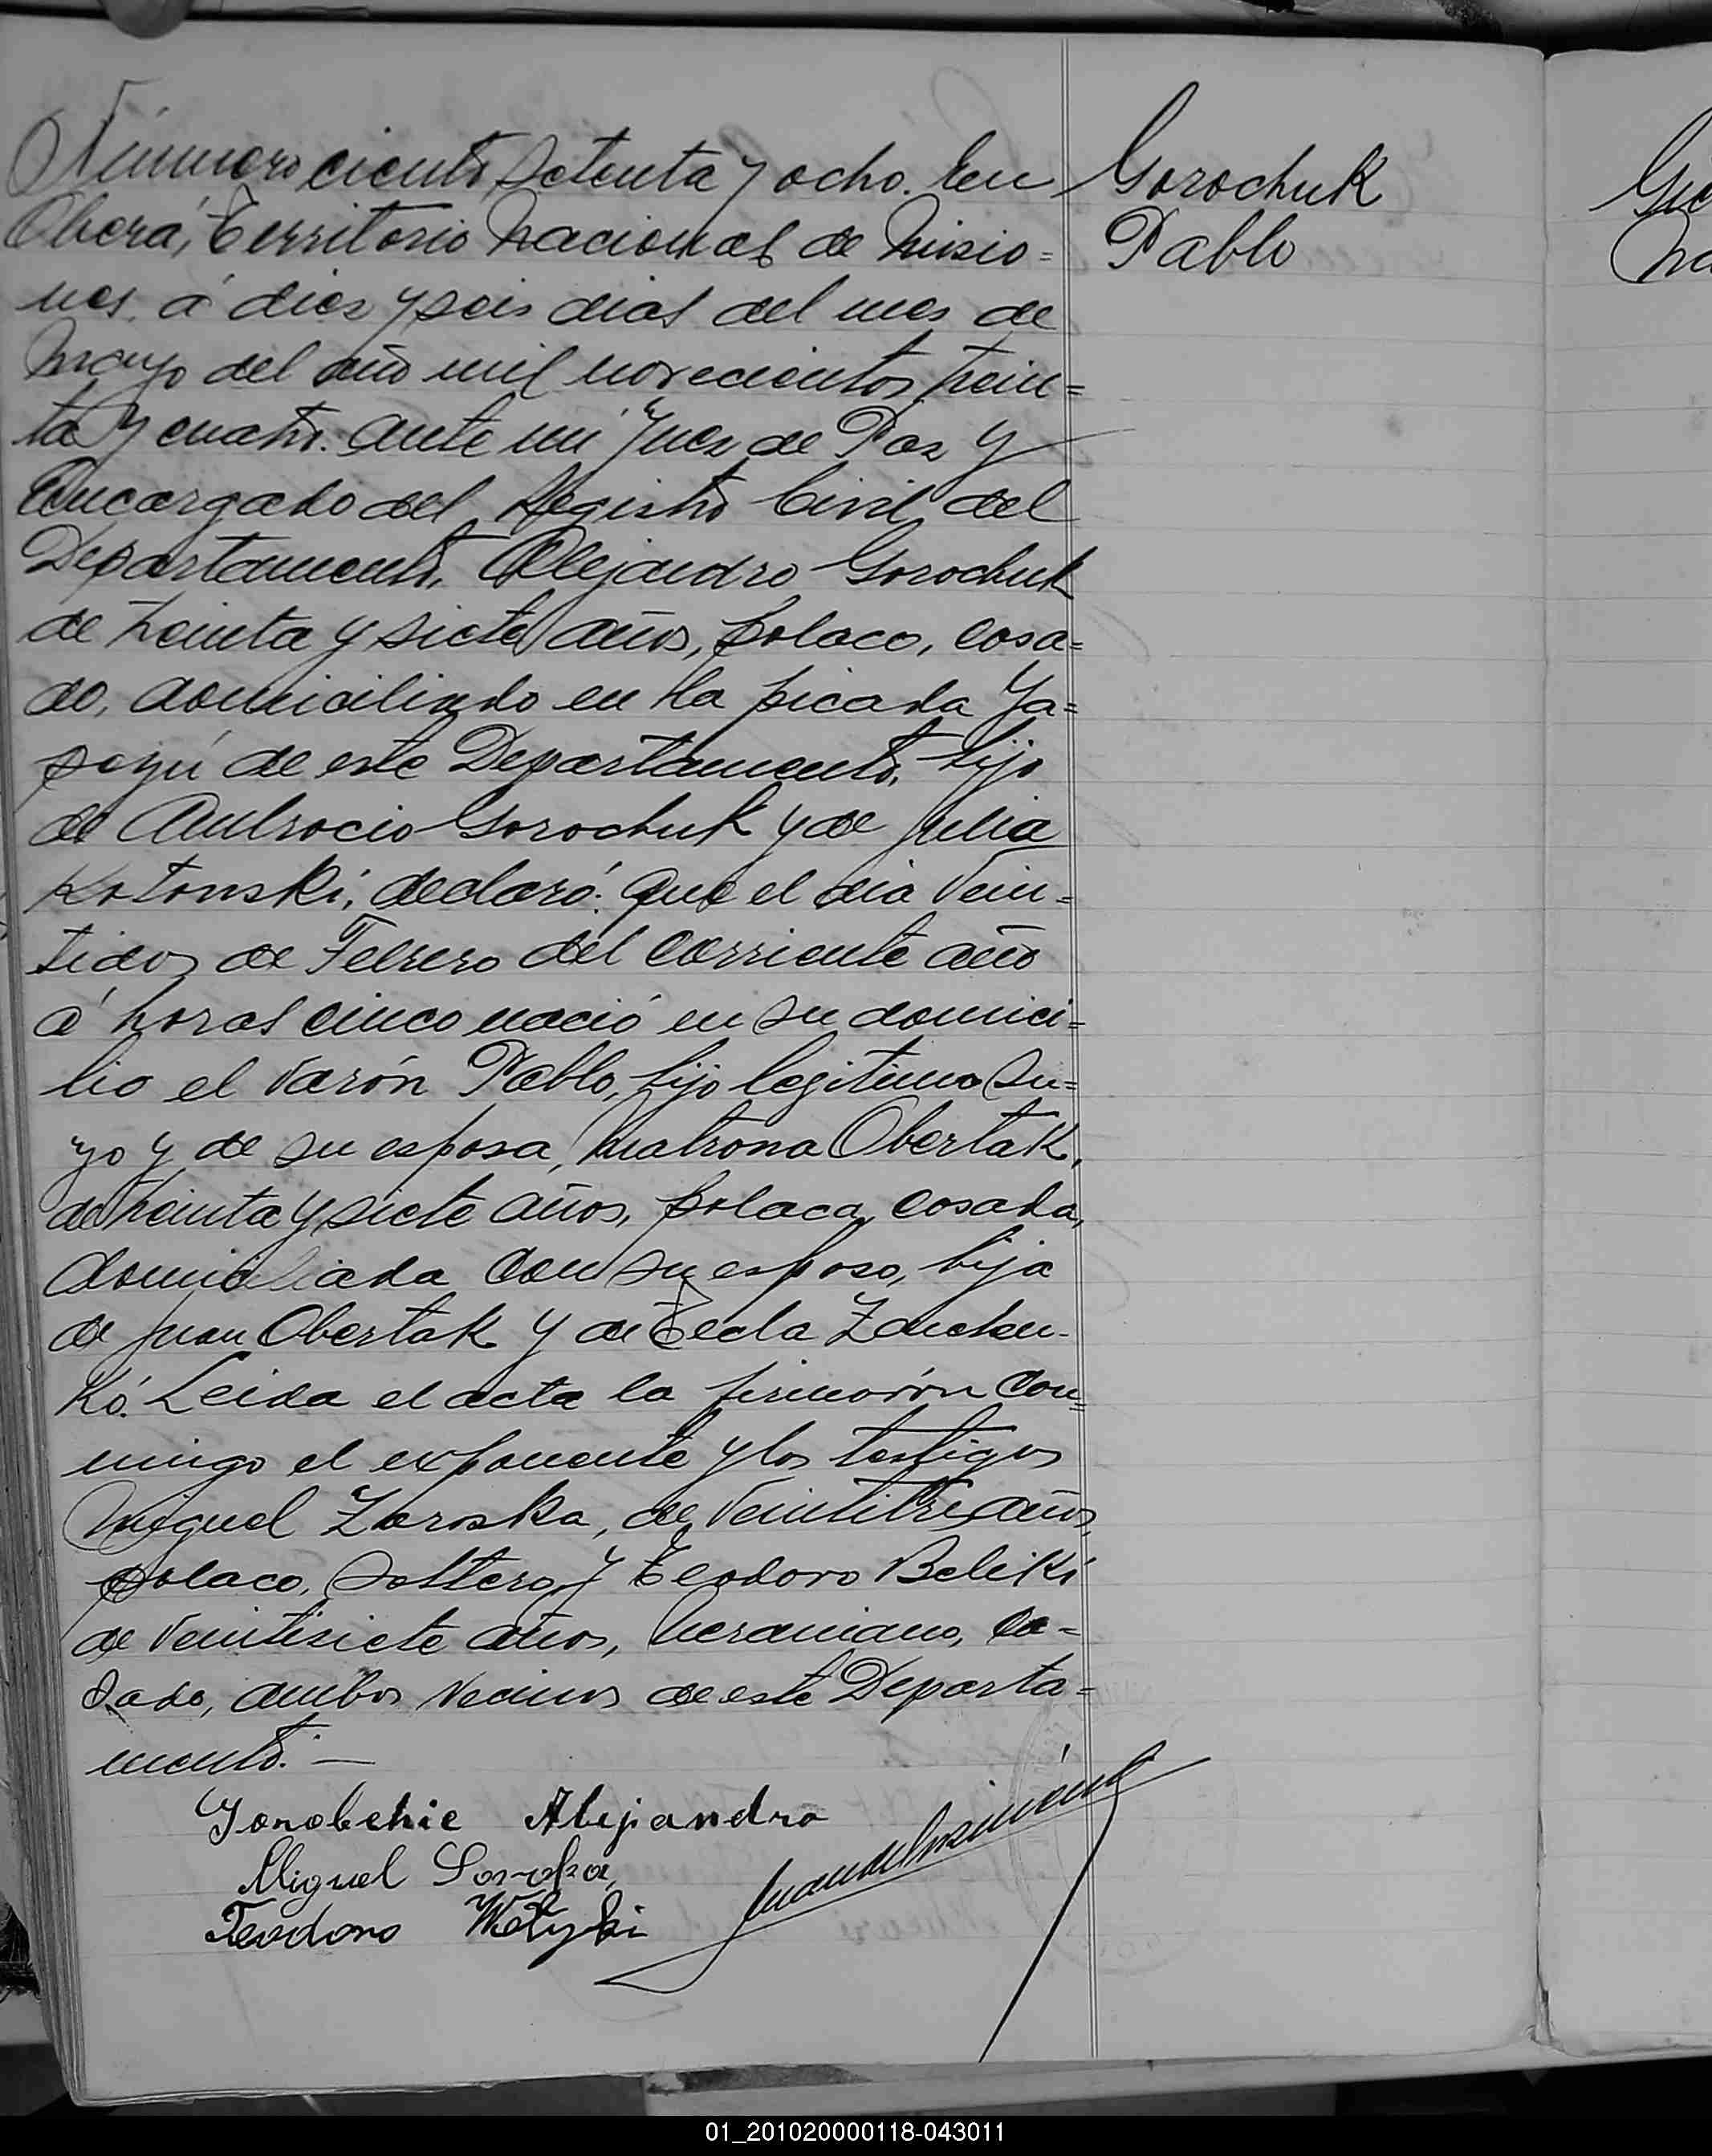 Número ciento setenta y ocho. En
Oberá, Territorio Nacional de Misio=
nes, á diez y seis dias del mes de
Mayo del año mil novecientos trein=
ta y cuatro. Ante mi Juez de Paz y
Encargado del Registro Civil del
Departamento, Alejandro Gorochuk
de treinta y siete años, polaco, casa=
do, domiciliado en la picada Ya=
peyú de este Departamento, hijo
de Ambrocio Gorochuk y de Julia
Kotonski, declaró: Que el dia vein=
tidos de Febrero del corriente año
á horas cinco nació en su domici=
lio el varón Pablo, hijo legitimo su=
yo y de su esposa, Matrona Obertak,
de treinta y siete años, polaca, casada,
domiciliada con su esposo, hija
de Juan Obertak y de Tecla
kó. Leida el acta la firmarón con=
migo el exponente y los testigos
Miguel Zaroska, de veintitres años,
polaco, soltero y Teodoro Beliki
de veintisiete años, Ucraniano, ca=
sado, ambos vecinos de este Departa=
mento.—
Alejandro
Miguel
Teodoro Welyki
Gorochuk
Pablo
01_201020000118-043011